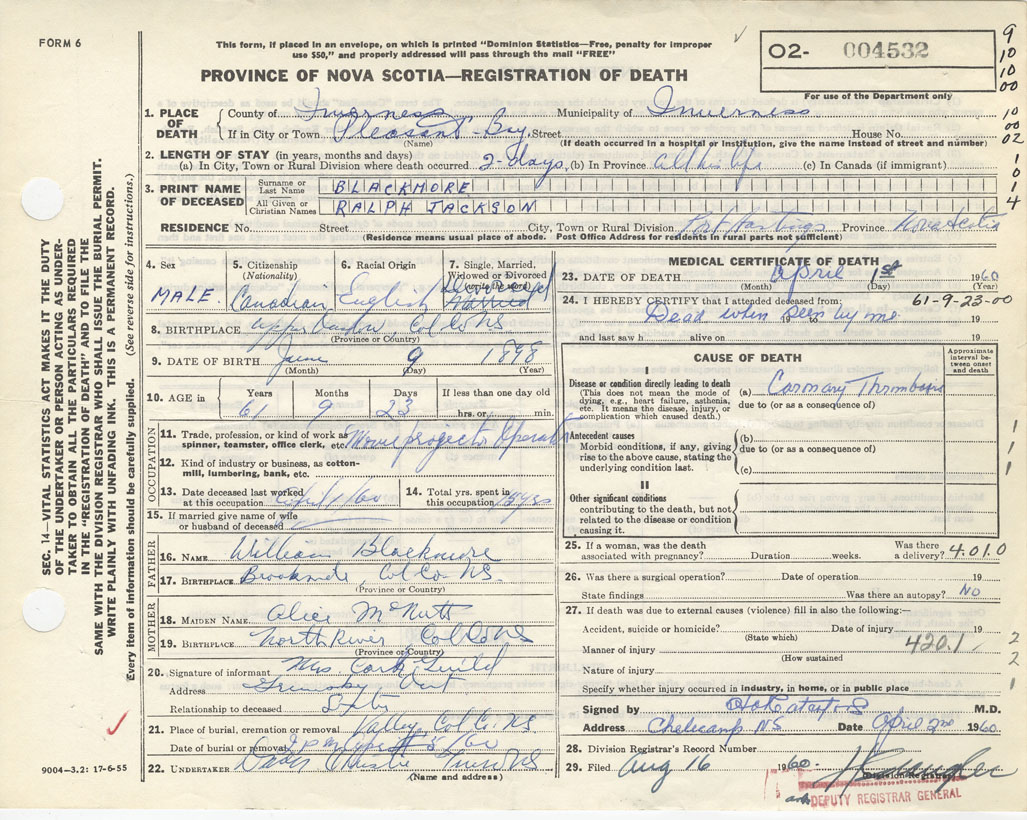 FORM 6
This form, if placed in an envelope, on which is printed "Dominion Statistics—Free, penalty for improper
use $50," and properly addressed will pass through the mail "FREE"
PROVINCE OF NOVA SCOTIA—REGISTRATION OF DEATH
O2- 004532
For use of the Department only
9
10
10
00
10
00
02
1
0
1
4
1. PLACE OF DEATH County of Inverness Municipality of Inverness
If in City or Town Pleasant Bay Street House No.
(Name) (If death occurred in a hospital or institution, give the name instead of street and number)
2. LENGTH OF STAY (in years, months and days)
(a) In City, Town or Rural Division where death occurred 2-days (b) In Province all his life (c) In Canada (if immigrant)
3. PRINT NAME OF DECEASED Surname or Last Name BLACKMORE
All Given or Christian Names RALPH JACKSON
RESIDENCE No. Street City, Town or Rural Division Port Hastings Province Nova Scotia
(Residence means usual place of abode. Post Office Address for residents in rural parts not sufficient)
4. Sex MALE
5. Citizenship (Nationality) Canadian
6. Racial Origin English
7. Single, Married, Widowed or Divorced (write the word) Divorced Married
8. BIRTHPLACE Upper Col Co NS
(Province or Country)
9. DATE OF BIRTH June 9 1898
(Month) (Day) (Year)
10. AGE in Years Months Days If less than one day old
61 9 23 hrs. or min.
OCCUPATION
11. Trade, profession, or kind of work as spinner, teamster, office clerk, etc. Movie projector Operator
12. Kind of industry or business, as cotton-mill, lumbering, bank, etc.
13. Date deceased last worked at this occupation April 1/60
14. Total yrs. spent in this occupation yrs
15. If married give name of wife or husband of deceased
FATHER
16. NAME William Blackmore
17. BIRTHPLACE Col Co NS.
(Province or Country)
MOTHER
18. MAIDEN NAME Alice McNutt
19. BIRTHPLACE North River Col Co NS
(Province or Country)
20. Signature of informant Mrs Guild
Address Grimsby Ont
Relationship to deceased Sister
21. Place of burial, cremation or removal Valley, Col Co. NS
Date of burial or removal
22. UNDERTAKER Truro NS
(Name and address)
MEDICAL CERTIFICATE OF DEATH
23. DATE OF DEATH April 1st 1960
(Month) (Day) (Year)
24. I HEREBY CERTIFY that I attended deceased from: 61-9-23-00
Dead when seen by me
19 to 19
and last saw h alive on 19
CAUSE OF DEATH
Approximate interval between onset and death
I
Disease or condition directly leading to death
(This does not mean the mode of dying, e.g., heart failure, asthenia, etc. It means the disease, injury, or complication which caused death.)
(a) Coronary Thrombosis
due to (or as a consequence of)
Antecedent causes
Morbid conditions, if any, giving rise to the above cause, stating the underlying condition last.
(b)
due to (or as a consequence of)
(c)
1
1
1
II
Other significant conditions
contributing to the death, but not related to the disease or condition causing it.
25. If a woman, was the death associated with pregnancy? Duration weeks. Was there a delivery? 4.01.0
26. Was there a surgical operation? Date of operation 19
State findings Was there an autopsy? No
27. If death was due to external causes (violence) fill in also the following:—
Accident, suicide or homicide? Date of injury 19
(State which)
Manner of injury 420.1
(How sustained
Nature of injury
2
2
1
Specify whether injury occurred in industry, in home, or in public place
Signed by M.D.
Address Cheticamp NS Date April 2nd 1960
28. Division Registrar's Record Number
29. Filed Aug 16 1960
Division Registrar
DEPUTY REGISTRAR GENERAL
SEC. 14—VITAL STATISTICS ACT MAKES IT THE DUTY
OF THE UNDERTAKER OR PERSON ACTING AS UNDER-
TAKER TO OBTAIN ALL THE PARTICULARS REQUIRED
IN THE "REGISTRATION OF DEATH" AND TO FILE THE
SAME WITH THE DIVISION REGISTRAR WHO SHALL ISSUE THE BURIAL PERMIT.
WRITE PLAINLY WITH UNFADING INK. THIS IS A PERMANENT RECORD.
Every item of information should be carefully supplied. (See reverse side for instructions.)
9004—3.2: 17-6-55